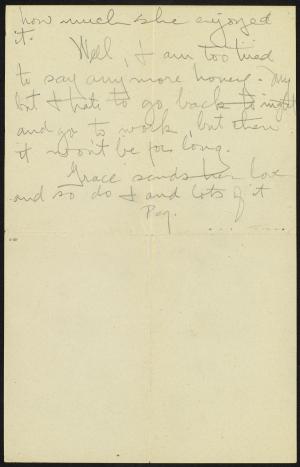 how much she enjoyed
it.
Well, I am too tired
to say any more honey. My
but I hate to go back to night
and go to work, but then
it won't be for long.
Grace sends her love
and so do I and lots of it
Peg.